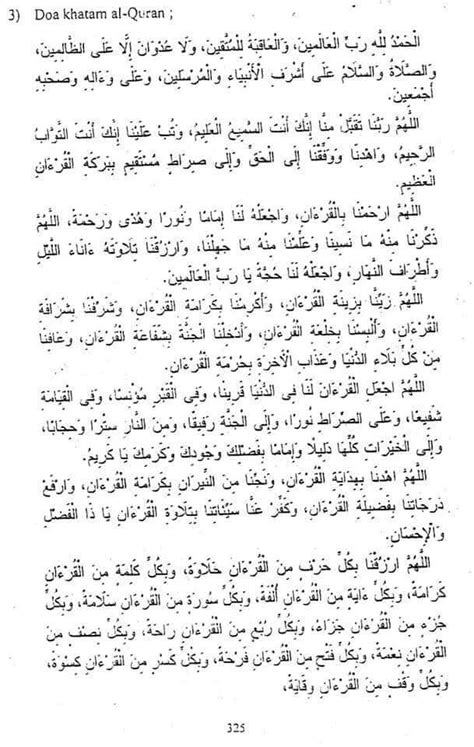 3) Doa khatam al-Quran ;
الْحَمْدُ لِلَّهِ رَبِّ الْعَالَمِينَ، وَالْعَاقِبَةُ لِلْمُتَّقِينَ، وَلَا عُدْوَانَ إِلَّا عَلَى الظَّالِمِينَ،
وَالصَّلَاةُ وَالسَّلَامُ عَلَى أَشْرَفِ الْأَنْبِيَاءِ وَالْمُرْسَلِينَ، وَعَلَى وَءَالِهِ وَصَحْبِهِ
أَجْمَعِينَ.
اللَّهُمَّ رَبَّنَا تَقَبَّلْ مِنَّا إِنَّكَ أَنْتَ السَّمِيعُ الْعَلِيمُ، وَتُبْ عَلَيْنَا إِنَّكَ أَنْتَ التَّوَّابُ
الرَّحِيمُ، وَاهْدِنَا وَوَفِّقْنَا إِلَى الْحَقِّ وَإِلَى صِرَاطٍ مُسْتَقِيمٍ بِبَرَكَةِ الْقُرْءَانِ
الْعَظِيمِ.
اللَّهُمَّ ارْحَمْنَا بِالْقُرْءَانِ، وَاجْعَلْهُ لَنَا إِمَامًا وَنُورًا وَهُدًى وَرَحْمَةً، اللَّهُمَّ
ذَكِّرْنَا مِنْهُ مَا نَسِينَا وَعَلِّمْنَا مِنْهُ مَا جَهِلْنَا، وَارْزُقْنَا تِلَاوَتَهُ ءَانَاءَ اللَّيْلِ
وَأَطْرَافَ النَّهَارِ، وَاجْعَلْهُ لَنَا حُجَّةً يَا رَبَّ الْعَالَمِينَ.
اللَّهُمَّ زَيِّنَّا بِزِينَةِ الْقُرْءَانِ، وَأَكْرِمْنَا بِكَرَامَةِ الْقُرْءَانِ، وَشَرِّفْنَا بِشَرَافَةِ
الْقُرْءَانِ، وَأَلْبِسْنَا بِخَلْعَةِ الْقُرْءَانِ، وَأَدْخِلْنَا الْجَنَّةَ بِشَفَاعَةِ الْقُرْءَانِ، وَعَافِنَا
مِنْ كُلِّ بَلَاءِ الدُّنْيَا وَعَذَابِ الْآخِرَةِ بِحُرْمَةِ الْقُرْءَانِ.
اللَّهُمَّ اجْعَلِ الْقُرْءَانَ لَنَا فِى الدُّنْيَا قَرِينًا، وَفِى الْقَبْرِ مُؤْنِسًا، وَفِى الْقِيَامَةِ
شَفِيعًا، وَعَلَى الصِّرَاطِ نُورًا، وَإِلَى الْجَنَّةِ رَفِيقًا، وَمِنَ النَّارِ سِتْرًا وَحِجَابًا،
وَإِلَى الْخَيْرَاتِ كُلِّهَا دَلِيلًا وَإِمَامًا بِفَضْلِكَ وَجُودِكَ وَكَرَمِكَ يَا كَرِيمُ.
اللَّهُمَّ اهْدِنَا بِهِدَايَةِ الْقُرْءَانِ، وَنَجِّنَا مِنَ النِّيرَانِ بِكَرَامَةِ الْقُرْءَانِ، وَارْفَعْ
دَرَجَاتِنَا بِفَضِيلَةِ الْقُرْءَانِ، وَكَفِّرْ عَنَّا سَيِّئَاتِنَا بِتِلَاوَةِ الْقُرْءَانِ يَا ذَا الْفَضْلِ
وَالْإِحْسَانِ.
اللَّهُمَّ ارْزُقْنَا بِكُلِّ حَرْفٍ مِنَ الْقُرْءَانِ حَلَاوَةً، وَبِكُلِّ كَلِمَةٍ مِنَ الْقُرْءَانِ
كَرَامَةً، وَبِكُلِّ ءَايَةٍ مِنَ الْقُرْءَانِ أُلْفَةً، وَبِكُلِّ سُورَةٍ مِنَ الْقُرْءَانِ سَلَامَةً، وَبِكُلِّ
جُزْءٍ مِنَ الْقُرْءَانِ جَزَاءً، وَبِكُلِّ رُبُعٍ مِنَ الْقُرْءَانِ رَاحَةً، وَبِكُلِّ نِصْفٍ مِنَ
الْقُرْءَانِ نِعْمَةً، وَبِكُلِّ فَتْحٍ مِنَ الْقُرْءَانِ فَرْحَةً، وَبِكُلِّ كَسْرٍ مِنَ الْقُرْءَانِ كِسْوَةً،
وَبِكُلِّ وَقْفٍ مِنَ الْقُرْءَانِ وِقَايَةً،
325